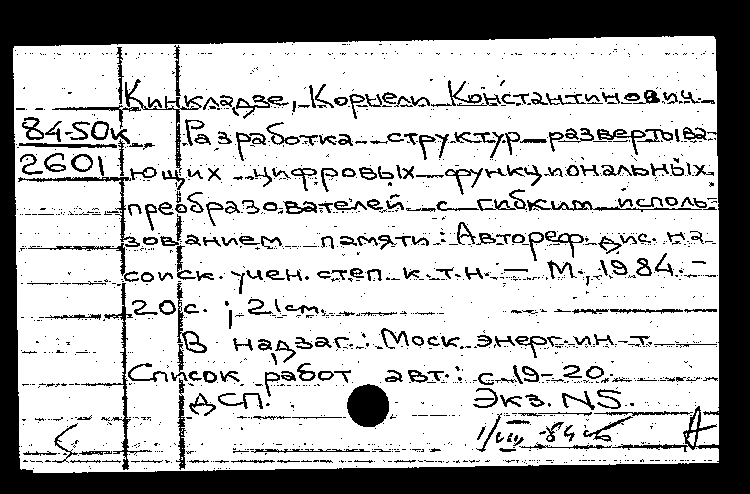 Кинкладзе, Корнели Константинович.
84-50к Разработка структур развертыва-
2601 ющих цифровых функциональных
преобразователей с гибким исполь-
зованием памяти: Автореф. дис. на
соиск. учен. степ. к.т.н. — М., 1984. -
20 с. ; 21 см.
В надзаг.: Моск. энерг. ин-т.
Список работ авт.: с. 19-20.
ДСП. Экз. N5.
1/VIII -84